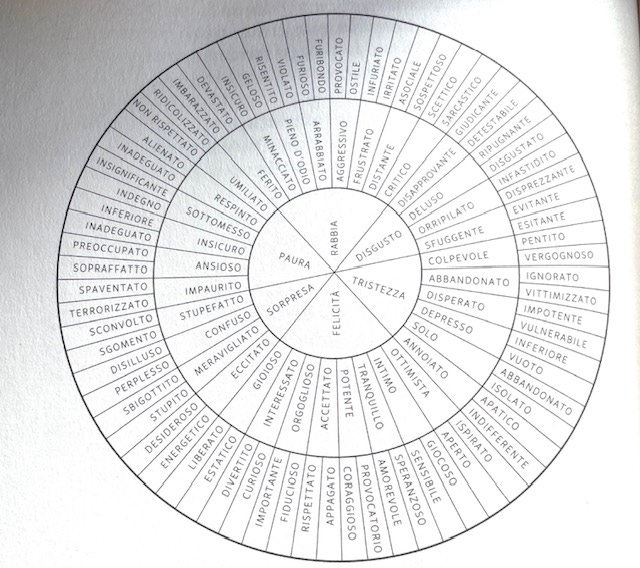 RABBIA
DISGUSTO
TRISTEZZA
FELICITÀ
SORPRESA
PAURA
AGGRESSIVO
FRUSTRATO
DISTANTE
CRITICO
DISAPPROVANTE
DELUSO
ORRIPILATO
SFUGGENTE
COLPEVOLE
ABBANDONATO
DISPERATO
DEPRESSO
SOLO
ANNOIATO
OTTIMISTA
INTIMO
TRANQUILLO
POTENTE
ACCETTATO
ORGOGLIOSO
INTERESSATO
GIOIOSO
ECCITATO
MERAVIGLIATO
CONFUSO
STUPEFATTO
IMPAURITO
ANSIOSO
INSICURO
SOTTOMESSO
RESPINTO
UMILIATO
FERITO
MINACCIATO
PIENO D'ODIO
ARRABBIATO
PROVOCATO
OSTILE
INFURIATO
IRRITATO
ASOCIALE
SOSPETTOSO
SCETTICO
SARCASTICO
GIUDICANTE
DETESTABILE
RIPUGNANTE
DISGUSTATO
INFASTIDITO
DISPREZZANTE
EVITANTE
ESITANTE
PENTITO
VERGOGNOSO
IGNORATO
VITTIMIZZATO
IMPOTENTE
VULNERABILE
INFERIORE
VUOTO
ABBANDONATO
ISOLATO
APATICO
INDIFFERENTE
ISPIRATO
APERTO
GIOCOSO
SENSIBILE
SPERANZOSO
AMOREVOLE
PROVOCATORIO
CORAGGIOSO
APPAGATO
RISPETTATO
FIDUCIOSO
IMPORTANTE
CURIOSO
DIVERTITO
ESTATICO
LIBERATO
ENERGETICO
DESIDEROSO
STUPITO
SBIGOTTITO
PERPLESSO
DISILLUSO
SGOMENTO
SCONVOLTO
TERRORIZZATO
SPAVENTATO
SOPRAFFATTO
PREOCCUPATO
INADEGUATO
INFERIORE
INDEGNO
INSIGNIFICANTE
INADEGUATO
ALIENATO
NON RISPETTATO
RIDICOLIZZATO
IMBARAZZATO
DEVASTATO
INSICURO
GELOSO
RISENTITO
VIOLATO
FURIOSO
FURIBONDO